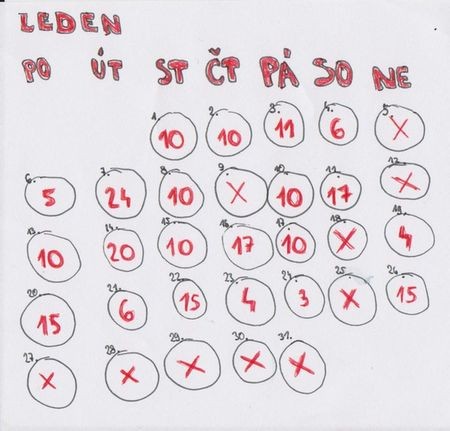 LEDEN
PO ÚT ST ČT PÁ SO NE
1. 2. 3. 4. 5.
10 10 11 6 X
6. 7. 8. 9. 10. 11. 12.
5 24 10 X 10 17 X
13. 14. 15. 16. 17. 18. 19.
10 20 10 17 10 X 4
20. 21. 22. 23. 24. 25. 26.
15 6 15 4 3 X 15
27. 28. 29. 30. 31.
X X X X X